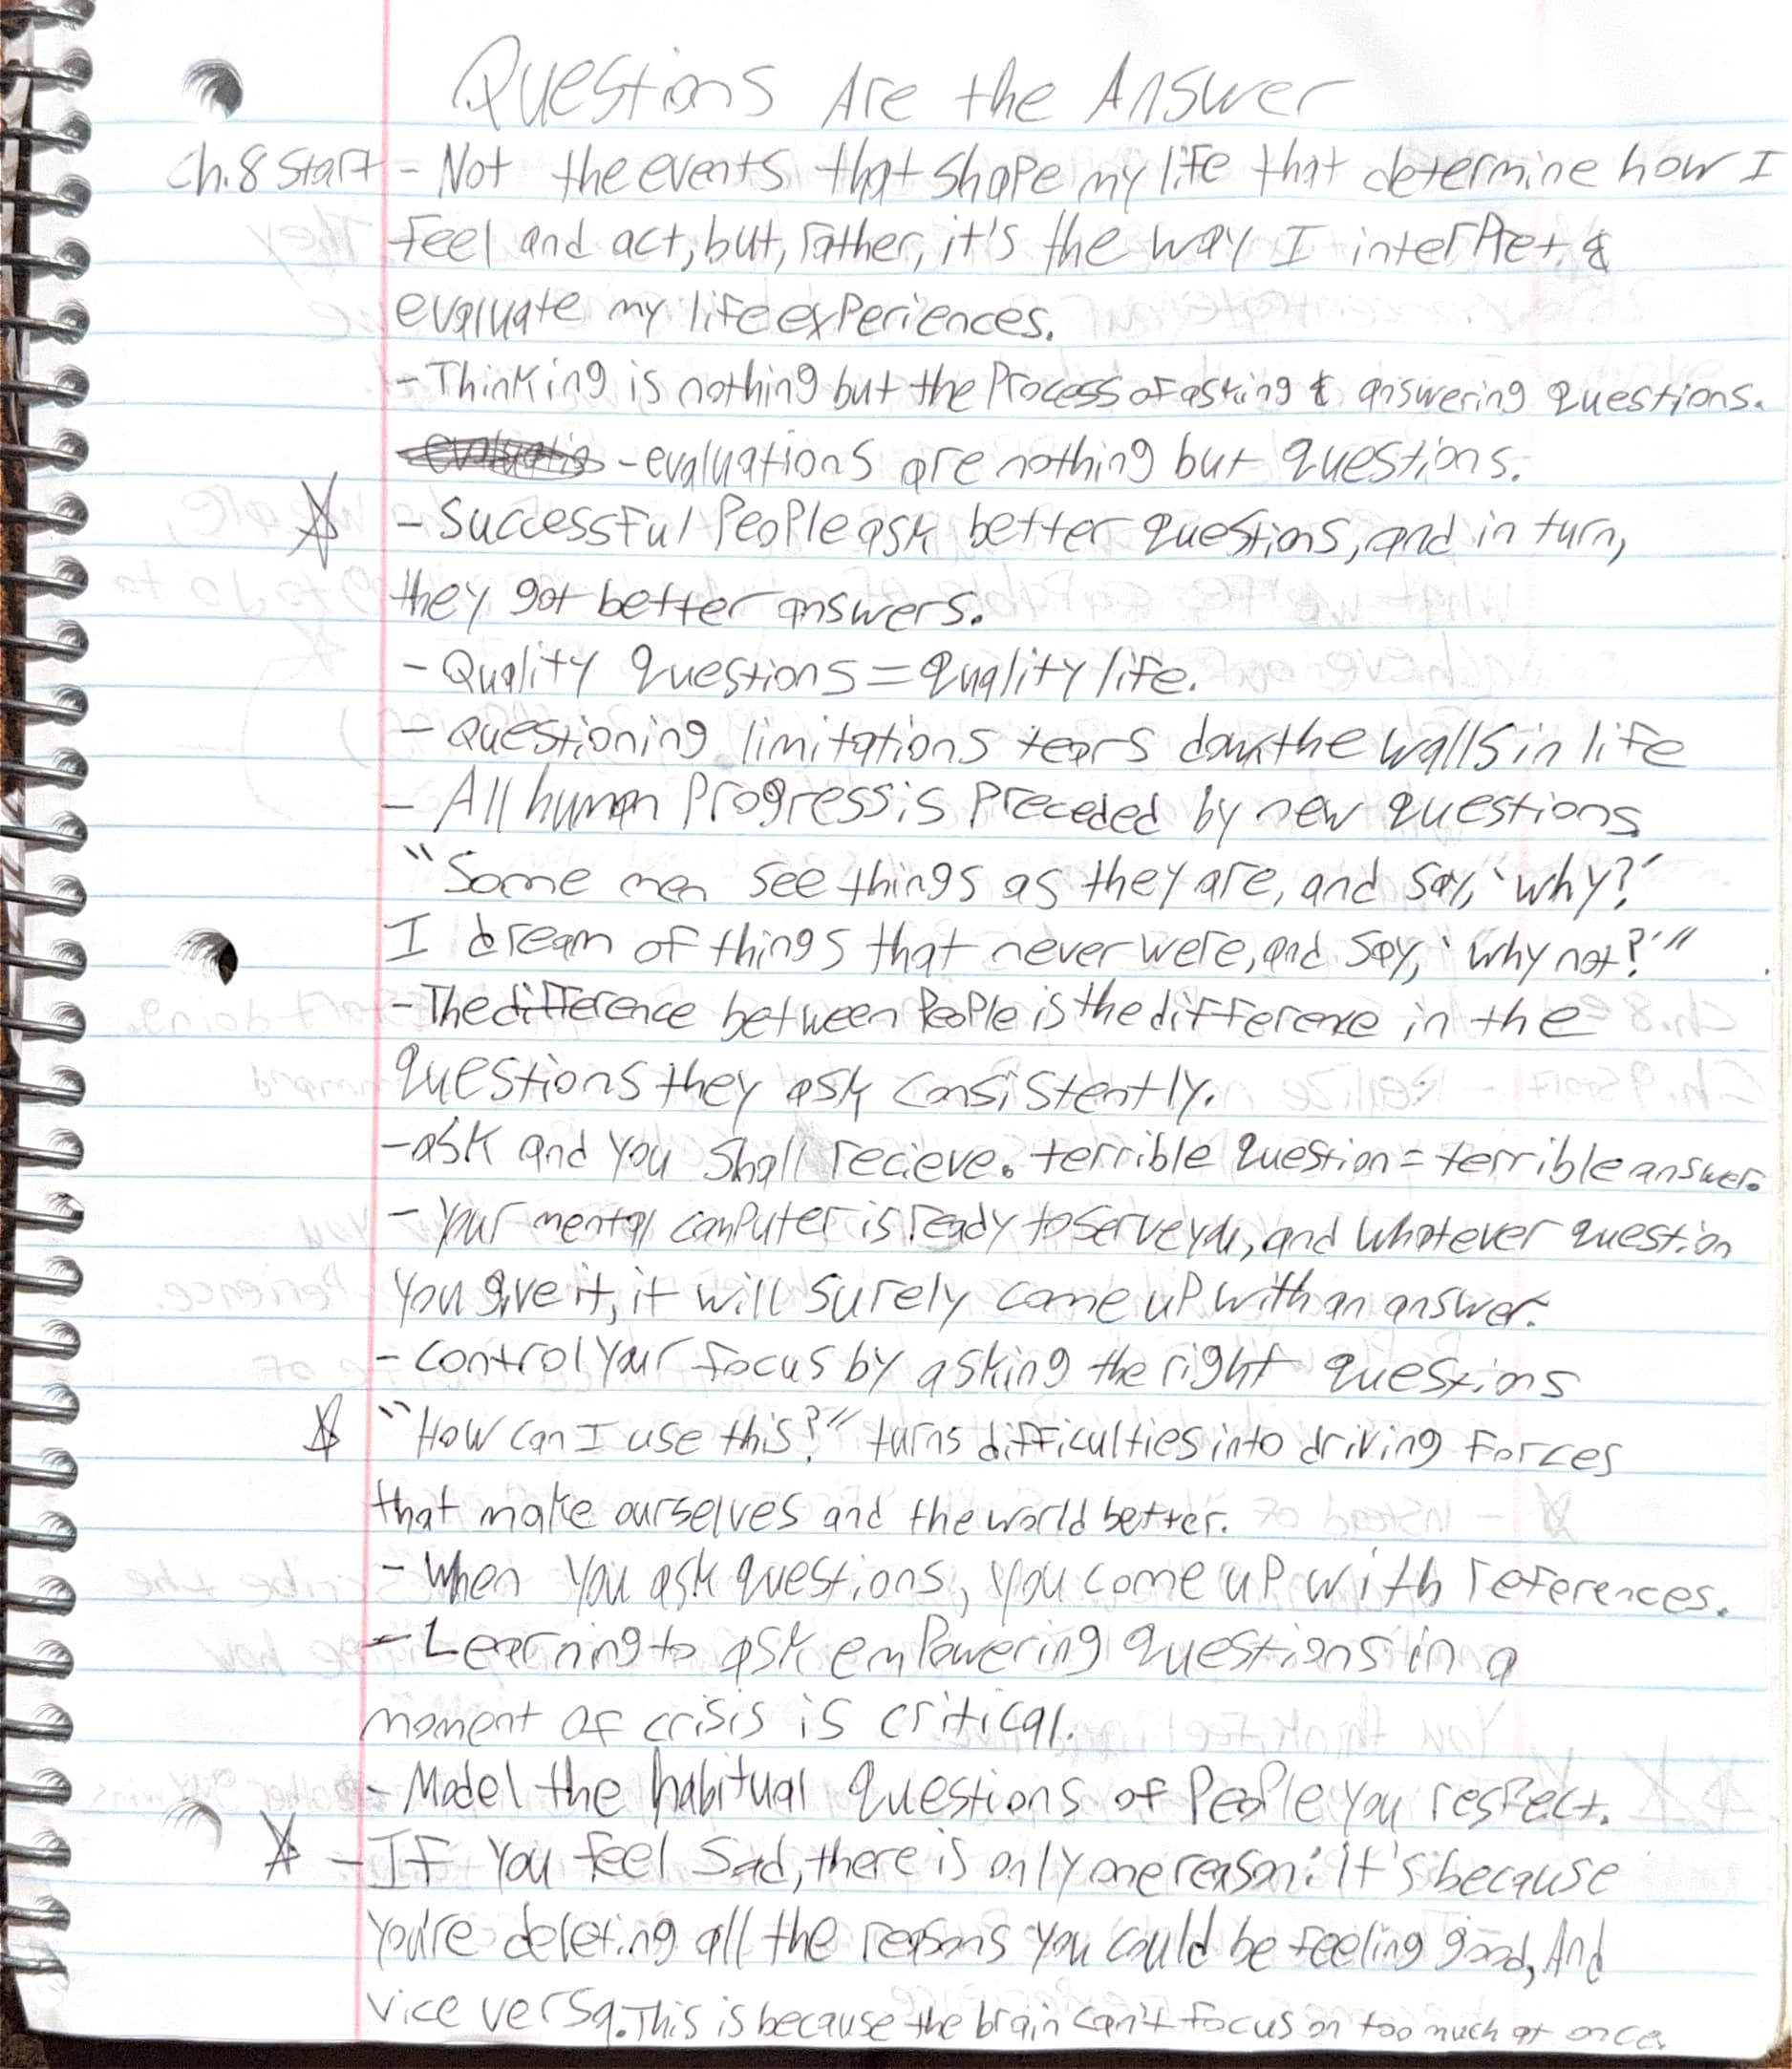 Questions Are the Answer
Ch.8 Start - Not the events that shape my life that determine how I
feel and act, but, rather, it's the way I interpret &
evaluate my life experiences.
- Thinking is nothing but the process of asking & answering questions.
- evaluations are nothing but questions.
☆ - Successful people ask better questions, and in turn,
they got better answers.
- Quality questions = quality life.
- questioning limitations tears down the walls in life
- All human progress is preceded by new questions
"Some men see things as they are, and say, 'why?'
I dream of things that never were, and say, 'why not?'"
- The difference between people is the difference in the
questions they ask consistently.
- ask and you shall recieve. terrible question = terrible answer.
- Your mental computer is ready to serve you, and whatever question
you give it, it will surely come up with an answer.
- control your focus by asking the right questions
☆ "How can I use this?" turns difficulties into driving forces
that make ourselves and the world better.
- When you ask questions, you come up with references.
- Learning to ask empowering questions in a
moment of crisis is critical.
- Model the habitual questions of people you respect.
☆ - If you feel sad, there is only one reason: it's because
you're deleting all the reasons you could be feeling good, And
vice versa. This is because the brain can't focus on too much at once.